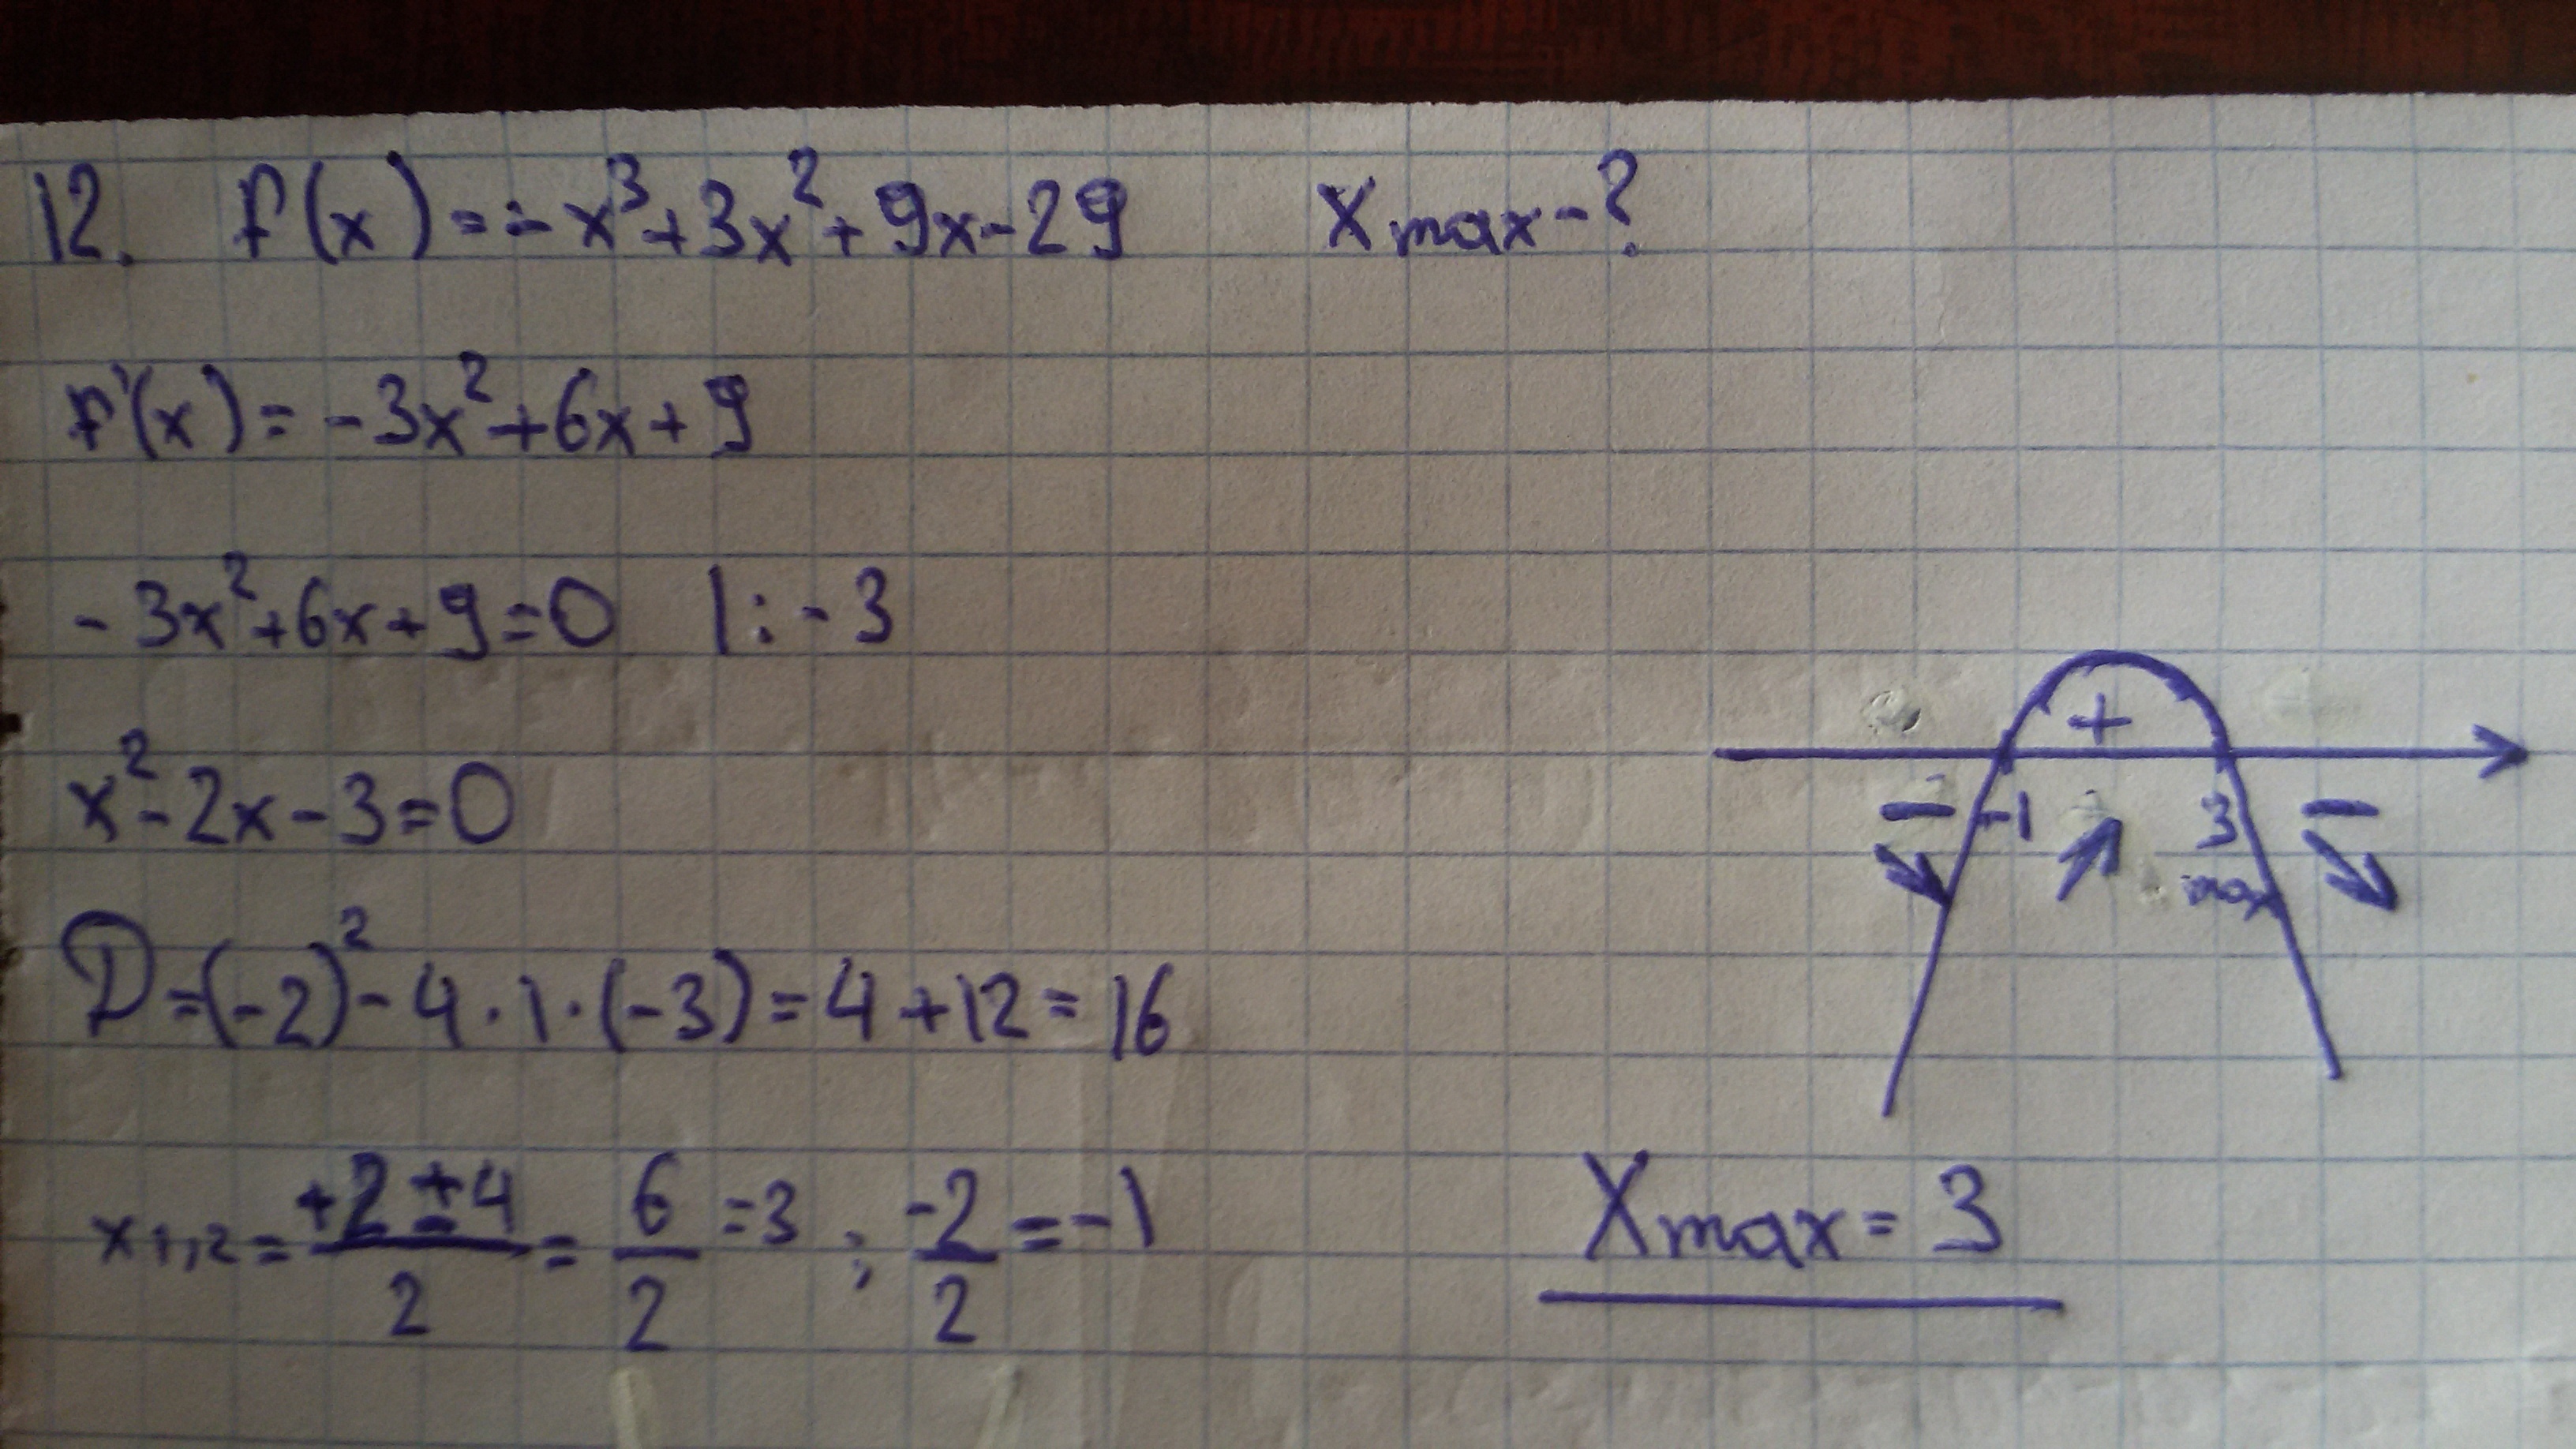 12. f(x) = -x³+3x²+9x-29 Xmax-?
f'(x) = -3x²+6x+9
-3x²+6x+9=0 |:-3
x²-2x-3=0
D=(-2)²-4·1·(-3)=4+12=16
x1,2= +2±4/2 = 6/2 =3 ; -2/2 =-1
+
- -1 3 -
max
Xmax=3